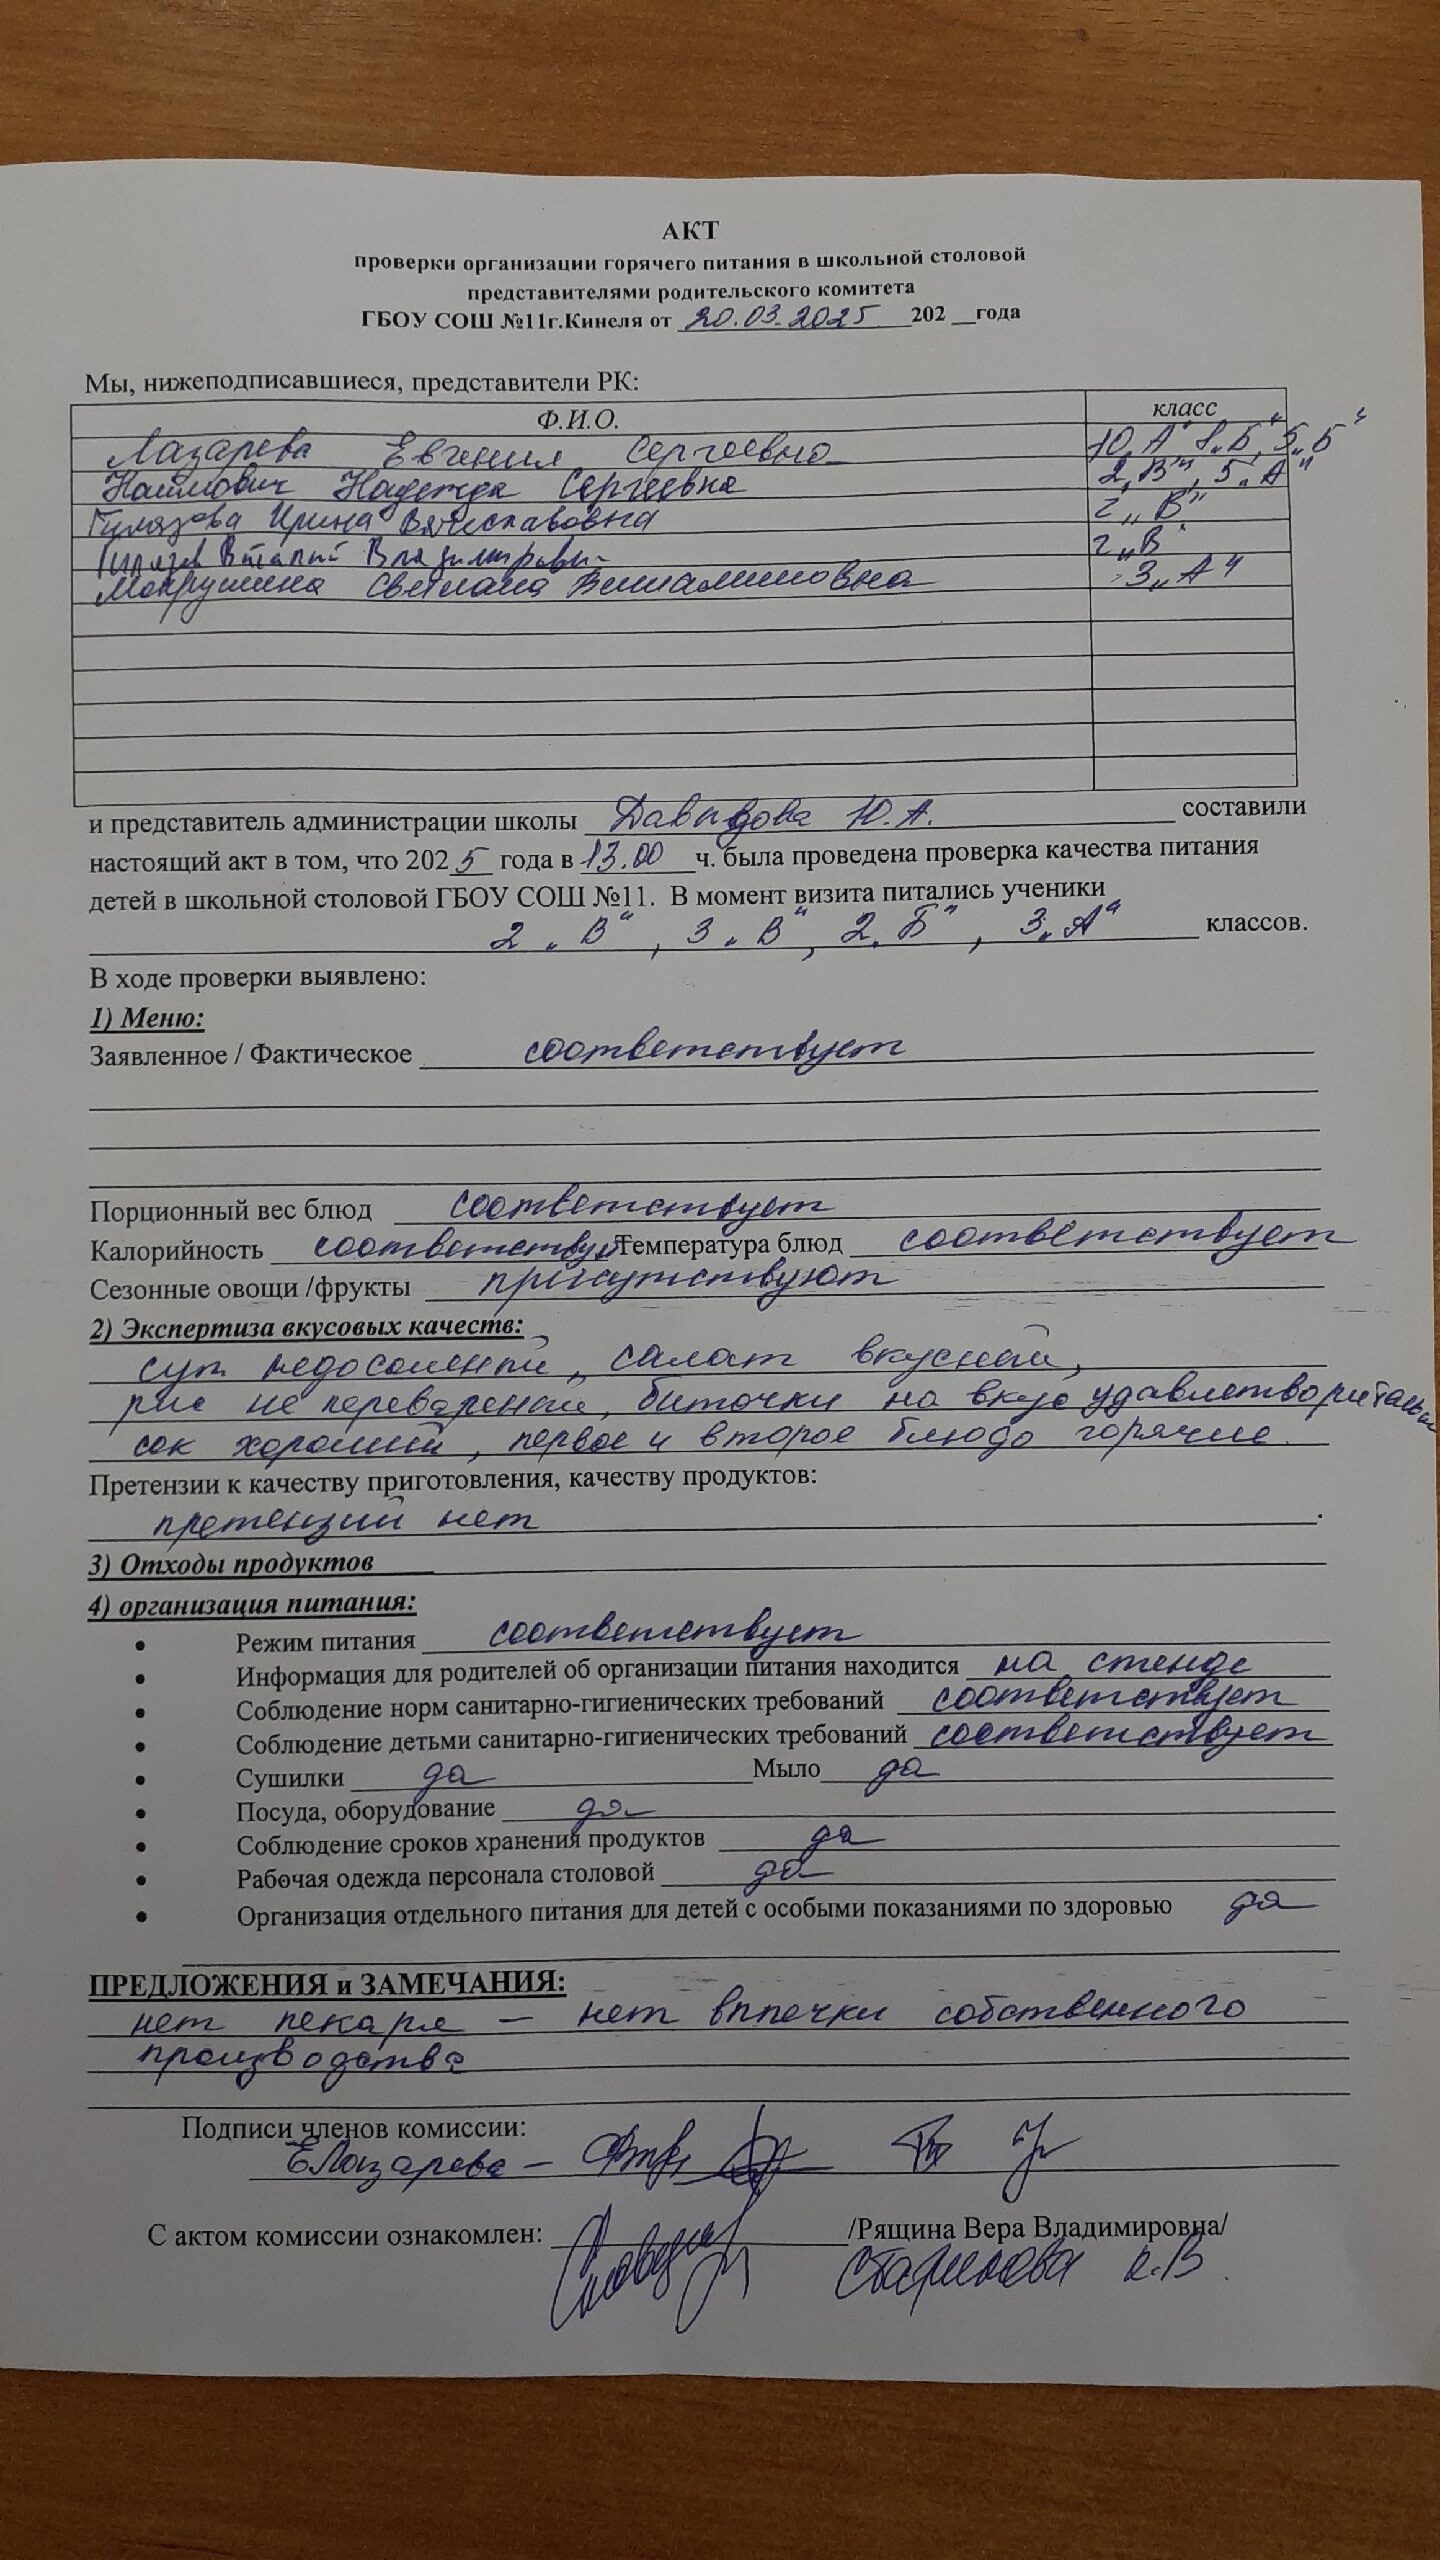 АКТ
проверки организации горячего питания в школьной столовой
представителями родительского комитета
ГБОУ СОШ №11г.Кинеля от 20.03.2025 202 __года
Мы, нижеподписавшиеся, представители РК:
Ф.И.О. класс
Лазарева Евгения Сергеевна 10„А" 8„Б", 5„Б"
Наимович Надежда Сергеевна 2„В", 5„А"
Гулязова Ирина Вячеславовна 2„В"
Виталий Владимирович 2„В"
Мокрушина Светлана Вениаминовна 3„А"
и представитель администрации школы Давыдова Ю.А. составили
настоящий акт в том, что 2025 года в 13.00 ч. была проведена проверка качества питания
детей в школьной столовой ГБОУ СОШ №11. В момент визита питались ученики
2„В", 3„В", 2„Б", 3„А" классов.
В ходе проверки выявлено:
1) Меню:
Заявленное / Фактическое соответствует
Порционный вес блюд соответствует
Калорийность соответствует Температура блюд соответствует
Сезонные овощи /фрукты присутствуют
2) Экспертиза вкусовых качеств:
суп недосоленый, салат вкусный,
рис не переварений, биточки на вкус удавлетворительн
сок хороший, первое и второе блюдо горячие.
Претензии к качеству приготовления, качеству продуктов:
претензий нет .
3) Отходы продуктов
4) организация питания:
• Режим питания соответствует
• Информация для родителей об организации питания находится на стенде
• Соблюдение норм санитарно-гигиенических требований соответствует
• Соблюдение детьми санитарно-гигиенических требований соответствует
• Сушилки да Мыло да
• Посуда, оборудование да
• Соблюдение сроков хранения продуктов да
• Рабочая одежда персонала столовой да
• Организация отдельного питания для детей с особыми показаниями по здоровью да
ПРЕДЛОЖЕНИЯ и ЗАМЕЧАНИЯ:
нет пекаря – нет выпечки собственного
производства
Подписи членов комиссии:
ЕЛазарева –
С актом комиссии ознакомлен: /Рящина Вера Владимировна/
Старикова